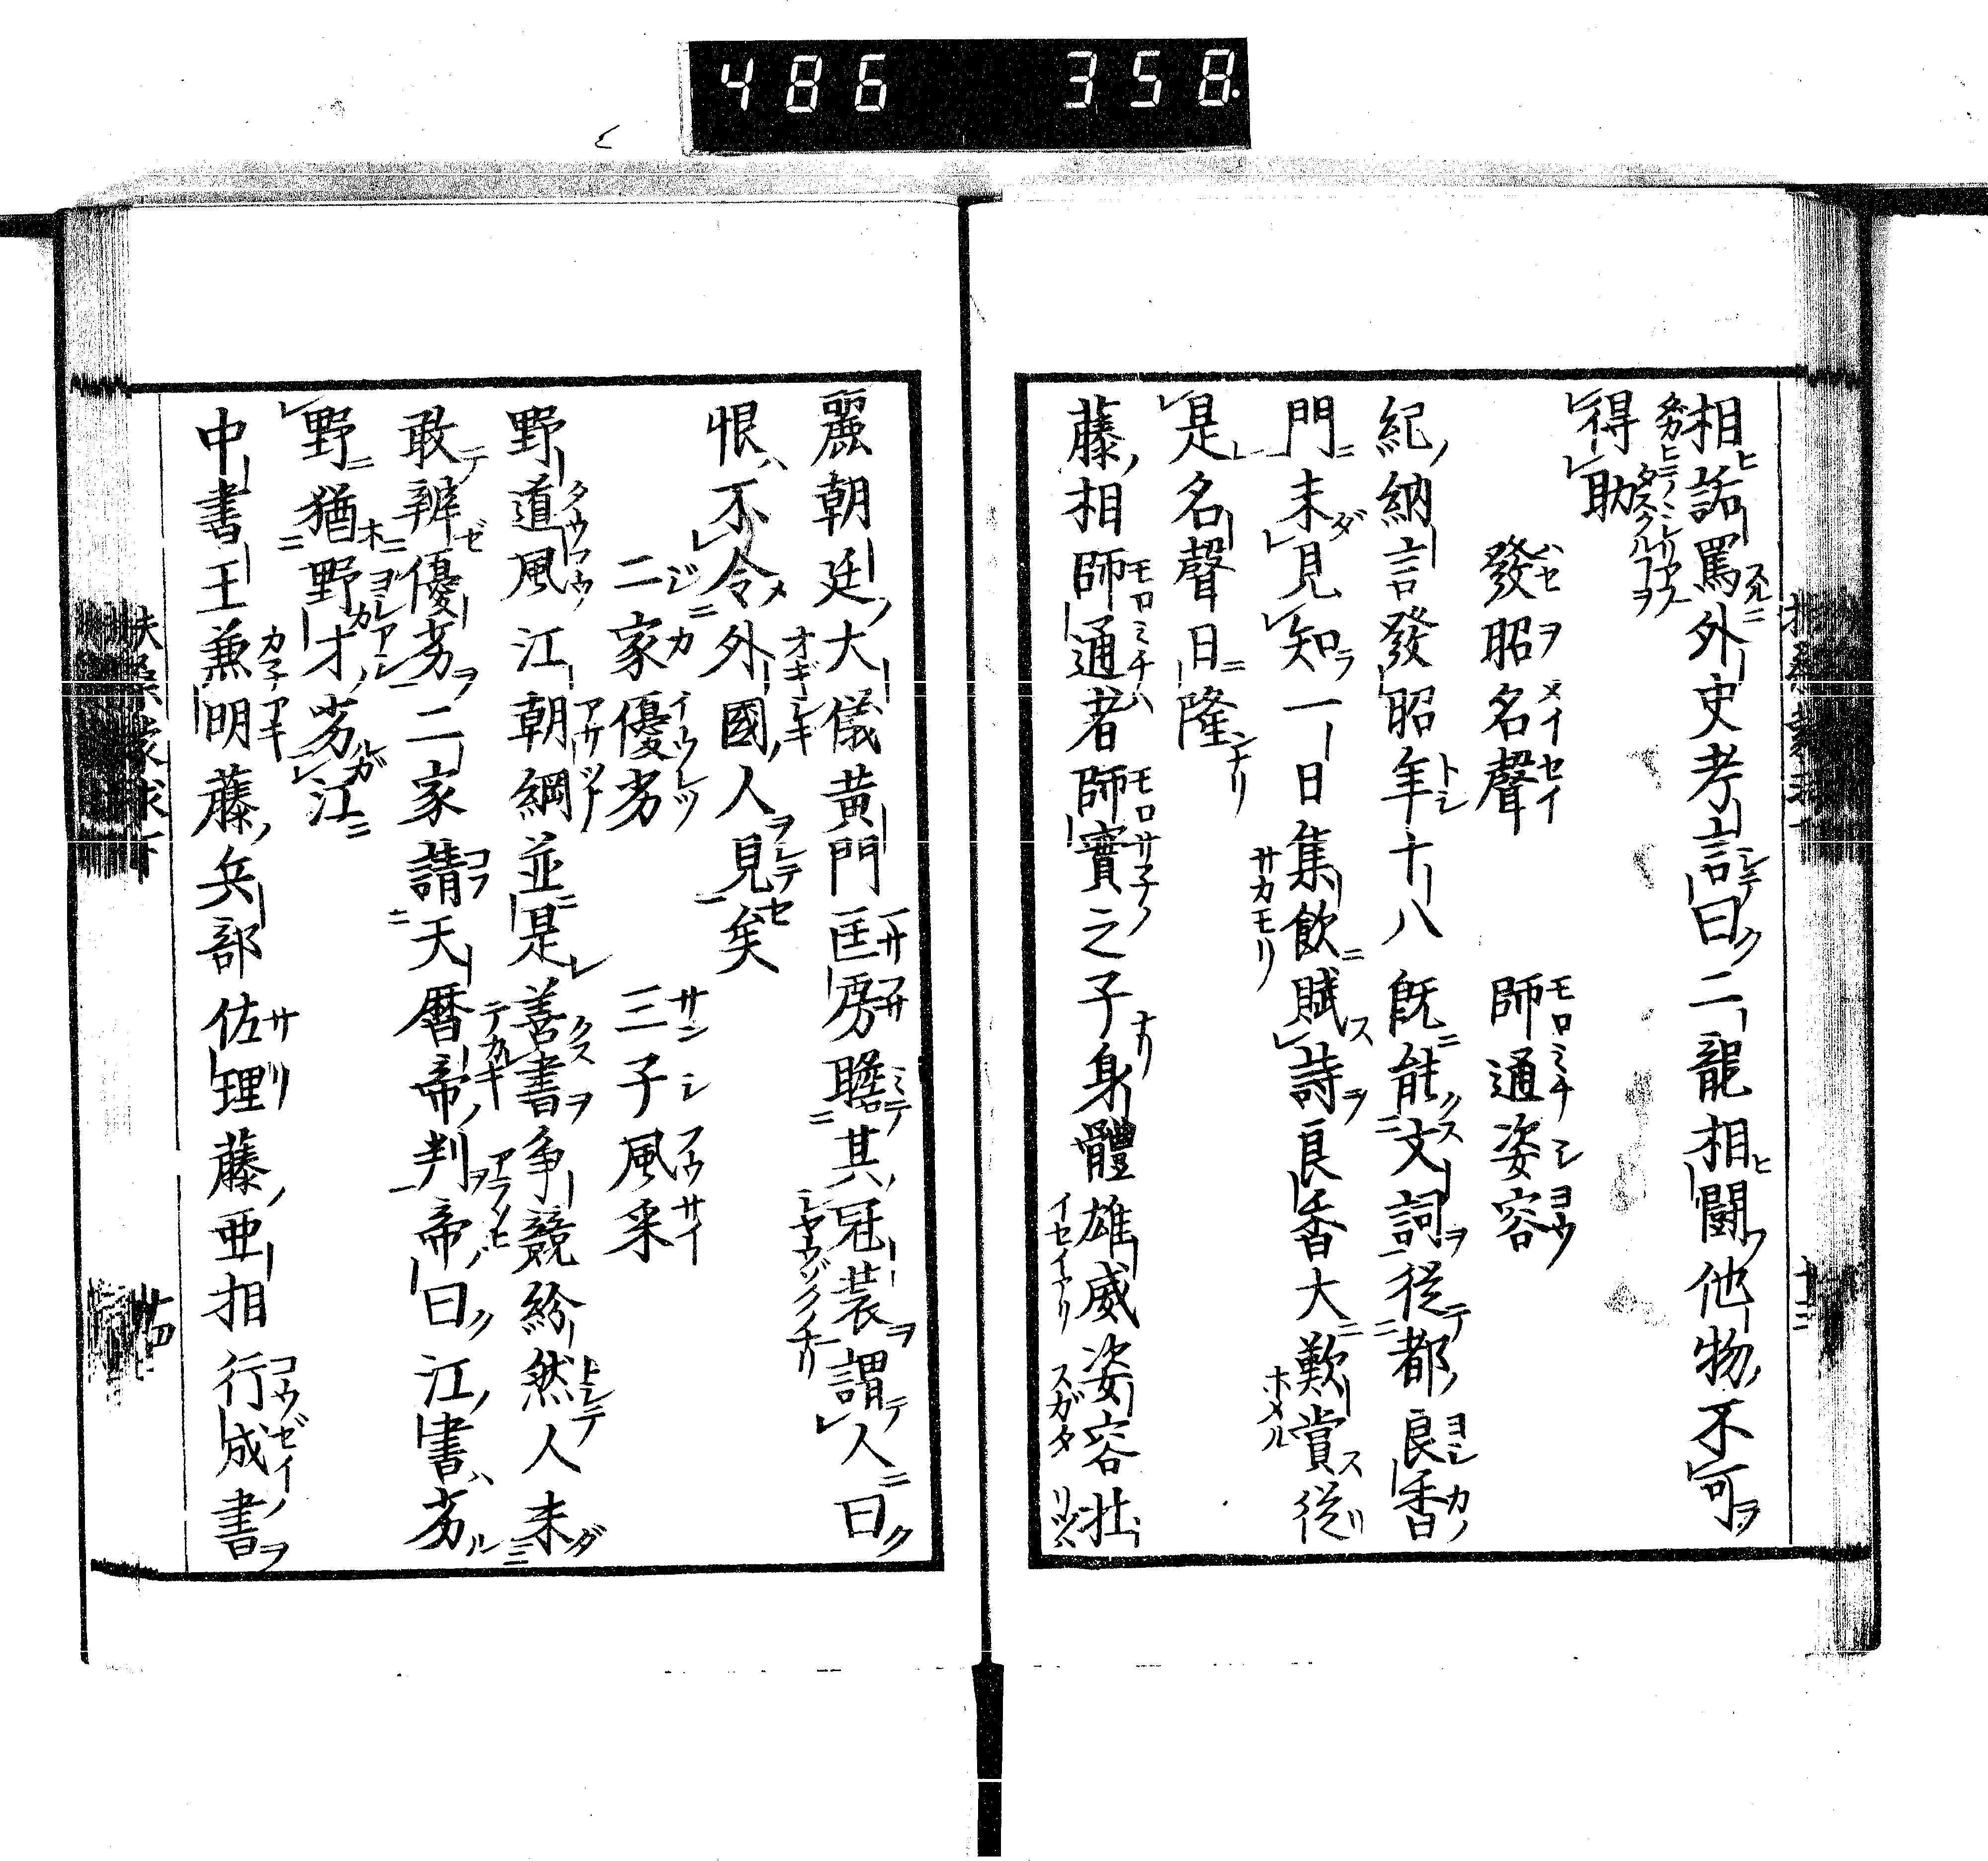 486 358.
相詬罵外史考言曰二龍相鬪他物不可
得助
發昭名聲 師通姿容
紀納言發昭年十八既能文詞從都良香
門未見知一日集飲賦詩良香大歎賞從
是名聲日隆
藤相師通者師實之子身體雄威姿容壯
麗朝廷大儀黃門匡房瞻其冠裝謂人曰
恨不令外國人見矣
二家優劣 三子風采
野道風江朝綱並是善書争競紛然人未
敢辨優劣二家請天曆帝判帝曰江書劣
野猶野才劣江
中書王兼明藤兵部佐理藤亜相行成書